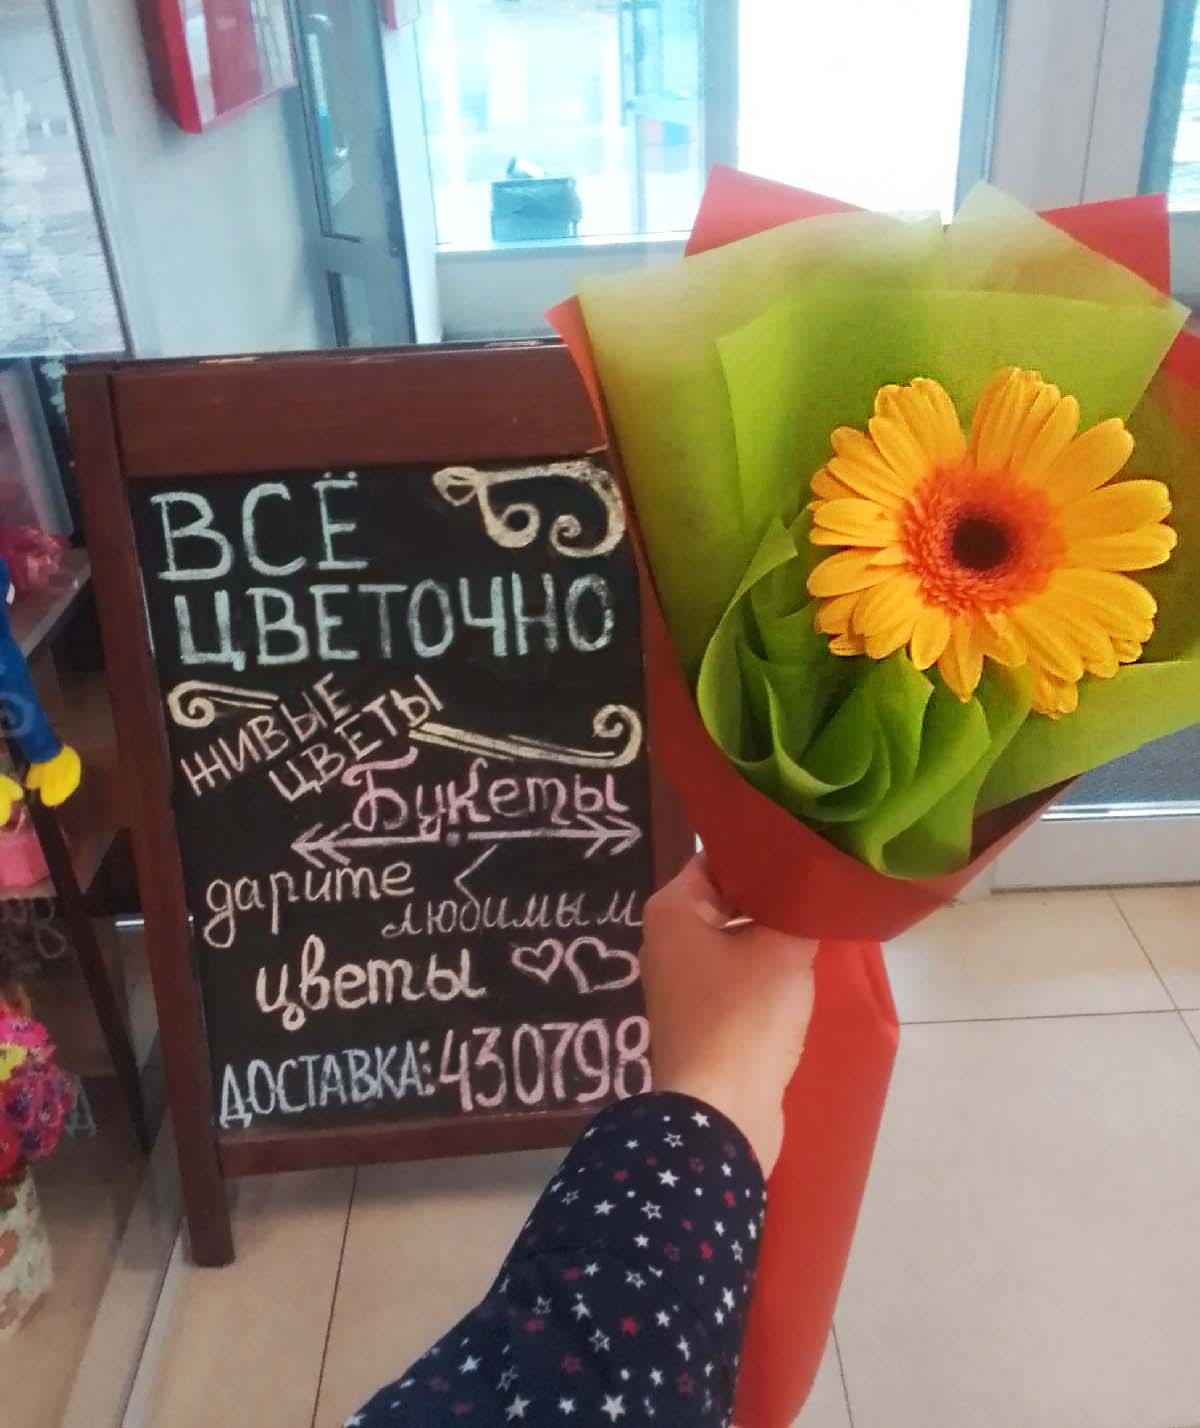 ВСЁ
ЦВЕТОЧНО
ЖИВЫЕ
ЦВЕТЫ
Букеты
дарите
любимым
цветы
ДОСТАВКА: 430798